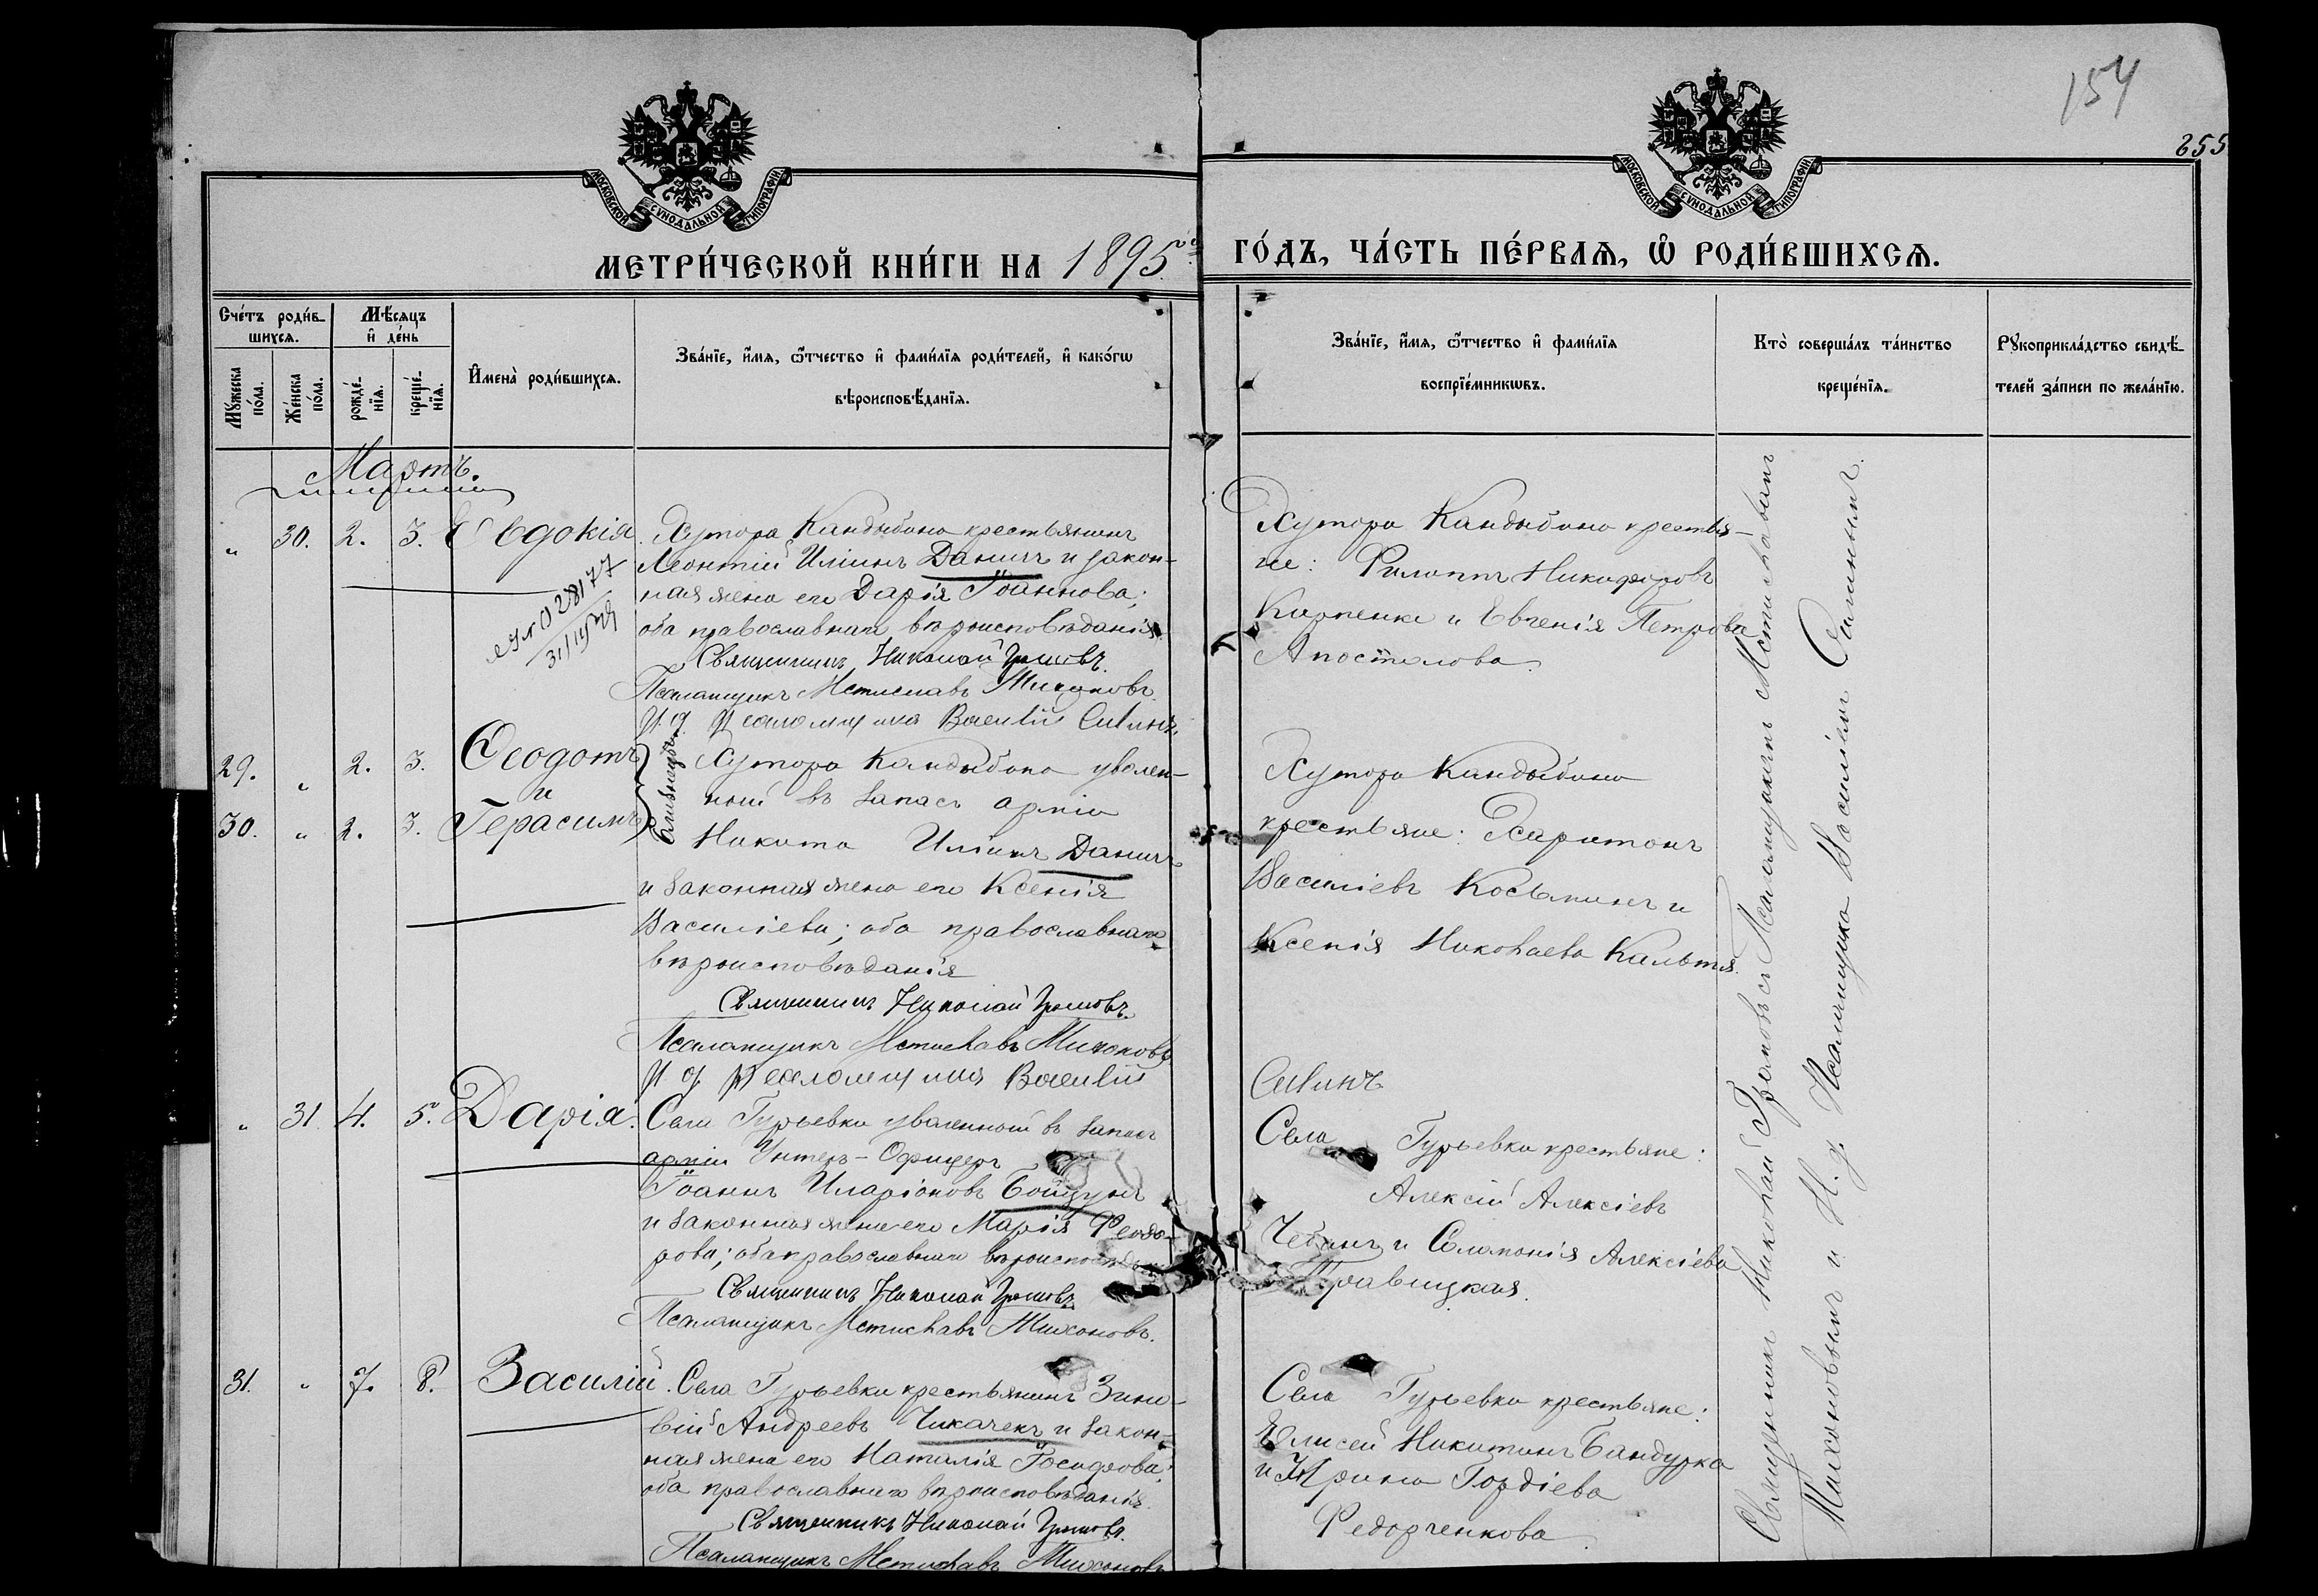 154
255
МОСКОВСКОЙ СУНОДАЛЬНОЙ ТИПОГРАФІИ
МОСКОВСКОЙ СУНОДАЛЬНОЙ ТИПОГРАФІИ
МЕТРИ́ЧЕСКОЙ КНИ́ГИ НА 1895
ГО́ДЪ, ЧА́СТЬ ПЕ́РВАѦ, Ѡ҆ РОДИ́ВШИХСѦ.
Сче́тъ роди́в-
шихсѧ.
Мꙋ́жеска по́ла.
Же́нска по́ла.
Мѣ́сѧцъ
и҆ де́нь
рожде́-
нїѧ.
креще́-
нїѧ.
И҆мена̀ роди́вшихсѧ.
Зва́нїе, и҆́мѧ, ѻ҆́тчество и҆ фами́лїѧ роди́телей, и҆ како́гѡ
вѣроисповѣ́данїѧ.
Зва́нїе, и҆́мѧ, ѻ҆́тчество и҆ фами́лїѧ
воспрїе́мникѡвъ.
Кто̀ соверша́лъ та́инство
креще́нїѧ.
Рꙋкоприкла́дство свидѣ́-
телей за́писи по жела́нїю.
Мартъ.
„ 30. 2. 3. Евдокія. Хутора Кандыбина крестьянинъ
Леонтій Иліинъ Данич и закон-
ная жена его Дарія Іоаннова;
оба православнаго вѣроисповѣданія.
Священникъ Николай
Псаломщикъ Мстиславъ Тихоновъ.
И. д. псаломщика Василій Силинъ.
Хутора Кандыбина крестья-
не: Филиппъ Никифоровъ
Карпенко и Евгенія Петрова
Апостолова.
29. „ 2. 3. Ѳеодотъ
и
30. „ 2. 3. Герасимъ
близнецы
Хутора Кандыбина уволен-
ный въ запасъ арміи
Никита Иліинъ Данич
и законная жена его Ксенія
Василіева; оба православнаго
вѣроисповѣданія
Священникъ Николай
Псаломщикъ Мстиславъ Тихоновъ
И. д. псаломщика Василій
Силинъ
Хутора Кандыбина
крестьяне: Харитонъ
Василіевъ Косьминъ и
Ксенія Николаева
„ 31 4. 5. Дарія. Села Гурьевки уволенный въ запасъ
арміи Унтеръ-Офицеръ
Іоаннъ Иларіоновъ Бойцунъ
и законная жена его Марія Ѳеодо-
рова; оба православнаго
Священникъ Николай
Псаломщикъ Мстиславъ Тихоновъ.
Села Гурьевки крестьяне:
Алексій Алексіевъ
Чебанъ и Соломонія Алексіева
31. „ 7. 8. Василій. Села Гурьевки крестьянинъ Зино-
вій Андреевъ Чикачекъ и закон-
ная жена его Наталія Іосифова;
оба православнаго вѣроисповѣданія.
Священникъ Николай
Псаломщикъ Мстиславъ Тихоновъ
Села Гурьевки крестьяне:
Елисей Никитинъ Бандурка
и Ирина Гордіева
Федорченкова.
Священникъ Николай съ Псаломщикомъ Мстиславомъ
Тихоновымъ и И. д. Псаломщика Василіемъ Силинымъ.